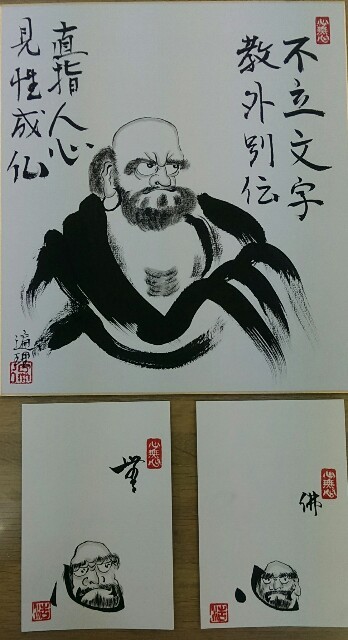 不立文字
教外別伝
直指人心
見性成仏
心無心
心無心
無
心無心
佛